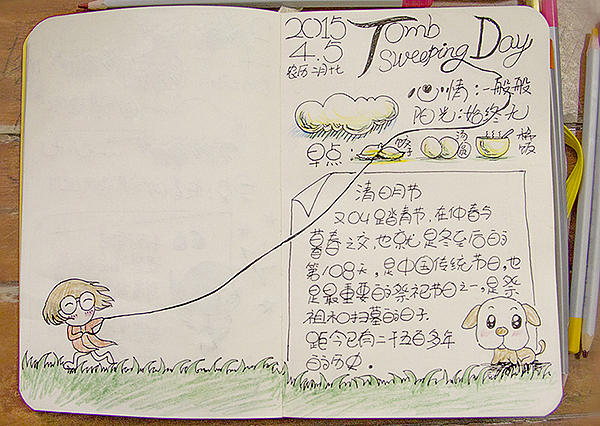 2015 Tomb
4.5 Sweeping Day
农历二月十七
心情:一般般
阳光:始终无
早点: 饺子 汤圆 稀饭
清明节
又叫踏青节,在仲春与
暮春之交,也就是冬至后的
第108天,是中国传统节日,也
是最重要的祭祀节日之一,是祭
祖和扫墓的日子
距今已有二千五百多年
的历史。